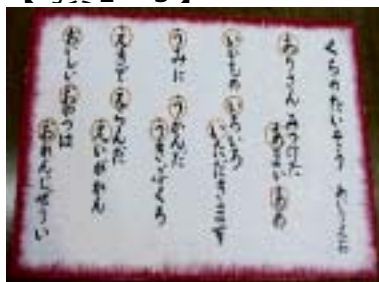 くちのたいそう あいうえお
ありさん みつけた
あまい あめ
いいもの いろいろ
いただきます
うみに うかんだ
うきぶくろ
えきで えらんだ
えいがかん
おいしい おやつは
おれんじぜりい